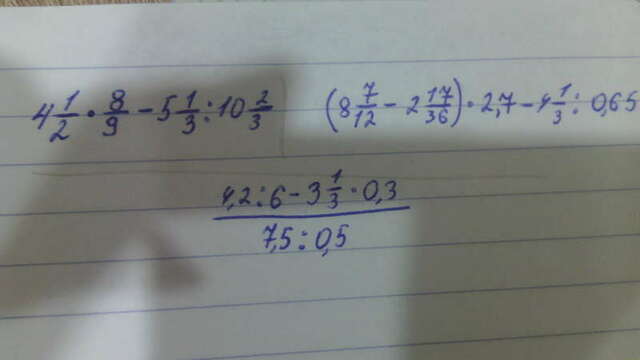 4 1/2 · 8/9 − 5 1/3 : 10 2/3
(8 7/12 − 2 17/36) · 2,7 − 4 1/3 : 0,65
4,2 : 6 − 3 1/3 · 0,3
7,5 : 0,5